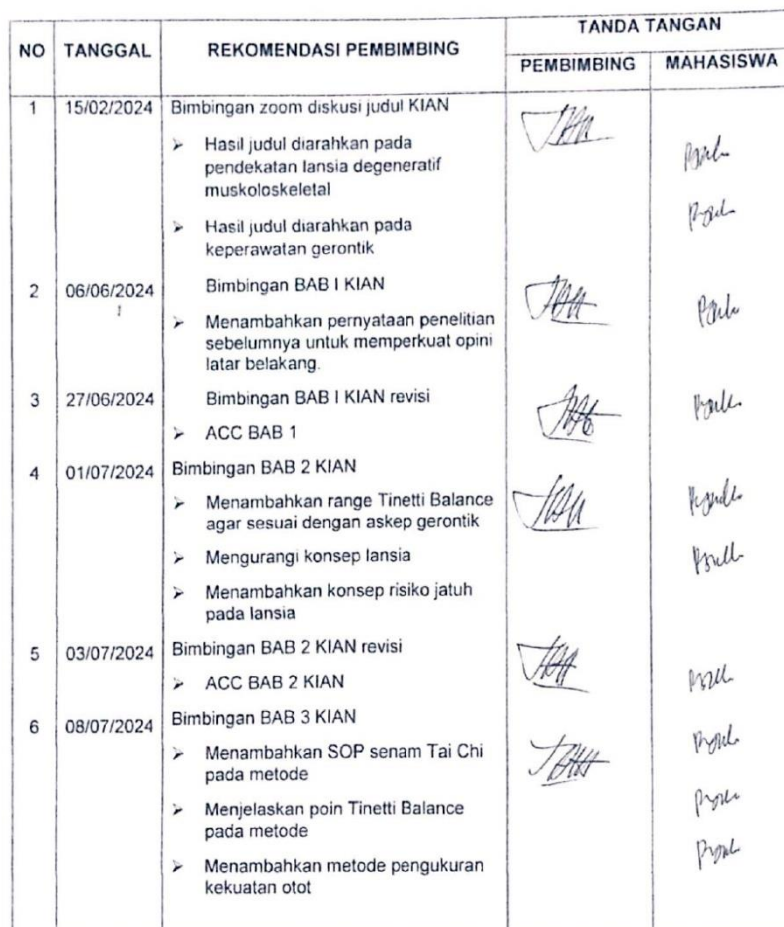 NO TANGGAL REKOMENDASI PEMBIMBING TANDA TANGAN
PEMBIMBING MAHASISWA
1 15/02/2024 Bimbingan zoom diskusi judul KIAN
➢ Hasil judul diarahkan pada
pendekatan lansia degeneratif
muskoloskeletal
➢ Hasil judul diarahkan pada
keperawatan gerontik
2 06/06/2024 Bimbingan BAB I KIAN
➢ Menambahkan pernyataan penelitian
sebelumnya untuk memperkuat opini
latar belakang.
3 27/06/2024 Bimbingan BAB I KIAN revisi
➢ ACC BAB 1
4 01/07/2024 Bimbingan BAB 2 KIAN
➢ Menambahkan range Tinetti Balance
agar sesuai dengan askep gerontik
➢ Mengurangi konsep lansia
➢ Menambahkan konsep risiko jatuh
pada lansia
5 03/07/2024 Bimbingan BAB 2 KIAN revisi
➢ ACC BAB 2 KIAN
6 08/07/2024 Bimbingan BAB 3 KIAN
➢ Menambahkan SOP senam Tai Chi
pada metode
➢ Menjelaskan poin Tinetti Balance
pada metode
➢ Menambahkan metode pengukuran
kekuatan otot